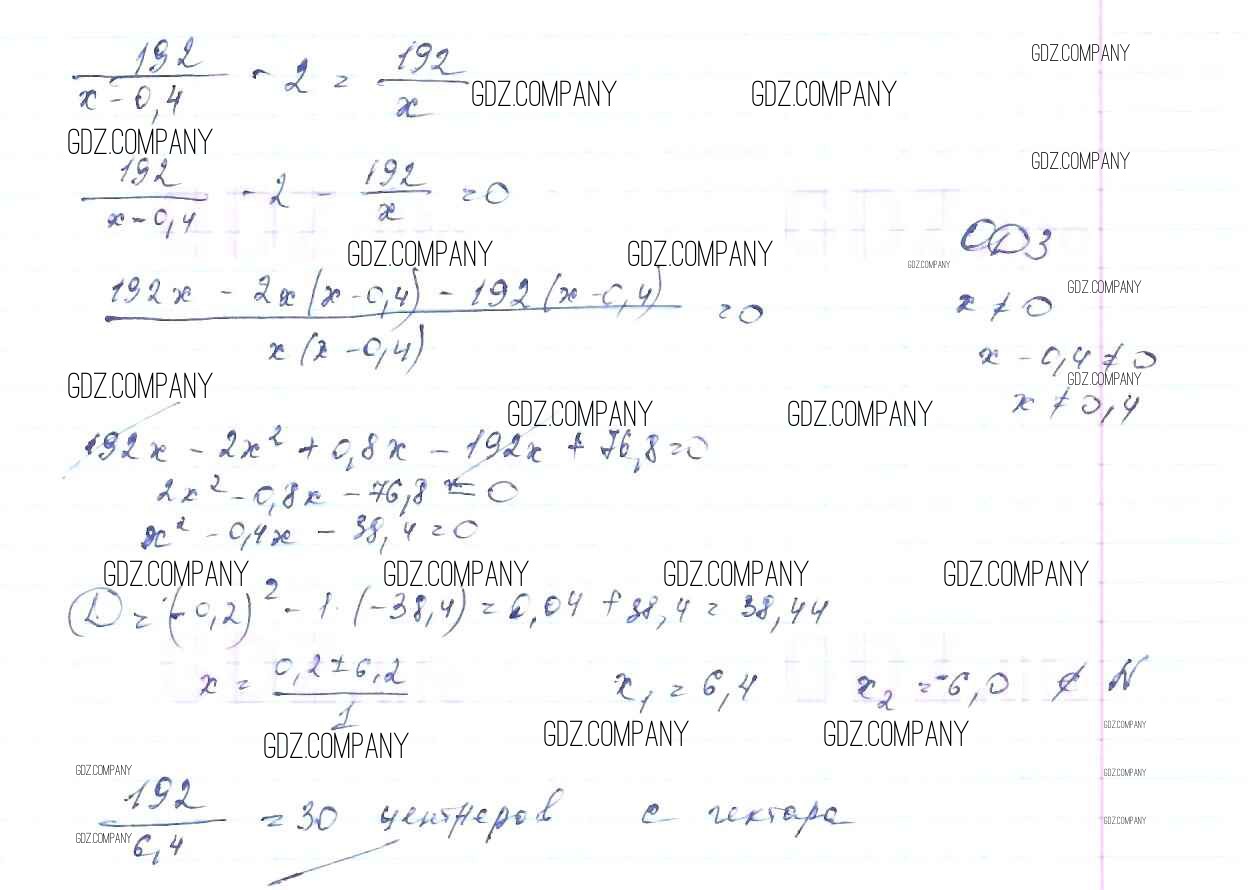 192/(x-0,4) - 2 = 192/x GDZ.COMPANY
GDZ.COMPANY GDZ.COMPANY
GDZ.COMPANY GDZ.COMPANY
192/(x-0,4) - 2 - 192/x = 0
ОДЗ
GDZ.COMPANY GDZ.COMPANY GDZ.COMPANY
(192x - 2x(x-0,4) - 192(x-0,4))/(x(x-0,4)) = 0
x ≠ 0 GDZ.COMPANY
x - 0,4 ≠ 0
GDZ.COMPANY GDZ.COMPANY
x ≠ 0,4
GDZ.COMPANY GDZ.COMPANY
192x - 2x² + 0,8x - 192x + 76,8 = 0
2x² - 0,8x - 76,8 = 0
x² - 0,4x - 38,4 = 0
GDZ.COMPANY GDZ.COMPANY GDZ.COMPANY GDZ.COMPANY
D = (-0,2)² - 1·(-38,4) = 0,04 + 38,4 = 38,44
x = (0,2 ± 6,2)/1 x₁ = 6,4 x₂ = -6,0 ∉ N
GDZ.COMPANY GDZ.COMPANY GDZ.COMPANY GDZ.COMPANY
GDZ.COMPANY GDZ.COMPANY
192/6,4 = 30 центнеров с гектара
GDZ.COMPANY GDZ.COMPANY